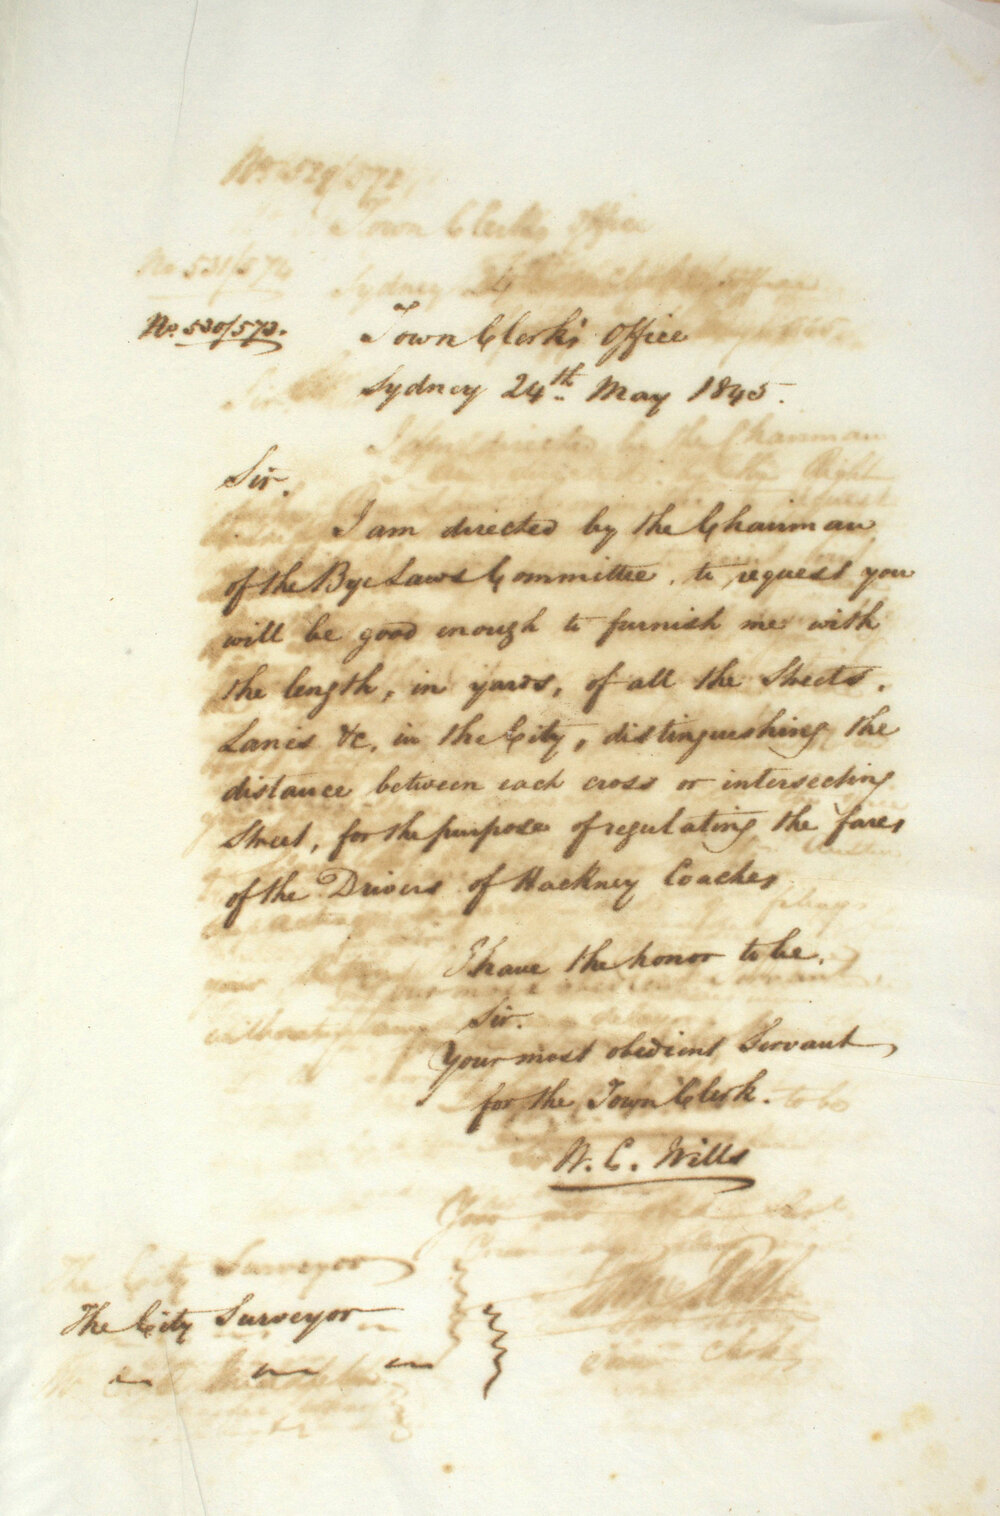 No. 530/573.
Town Clerk's Office
Sydney 24th May 1845.
Sir.
I am directed by the Chairman
of the Bye Laws Committee, to request you
will be good enough to furnish me with
the length, in yards, of all the Streets,
Lanes &c, in the City, distinguishing the
distance between each cross or intersecting
Street, for the purpose of regulating the fares
of the Drivers of Hackney Coaches
I have the honor to be,
Sir.
Your most obedient Servant
for the Town Clerk.
W. C. Wills
The City Surveyor